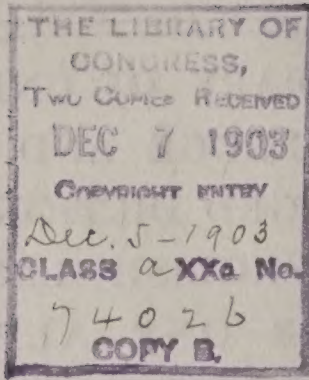 THE LIBRARY OF
CONGRESS,
TWO COPIES RECEIVED
DEC 7 1903
COPYRIGHT ENTRY
Dec. 5-1903
CLASS a XXc No.
74026
COPY B.